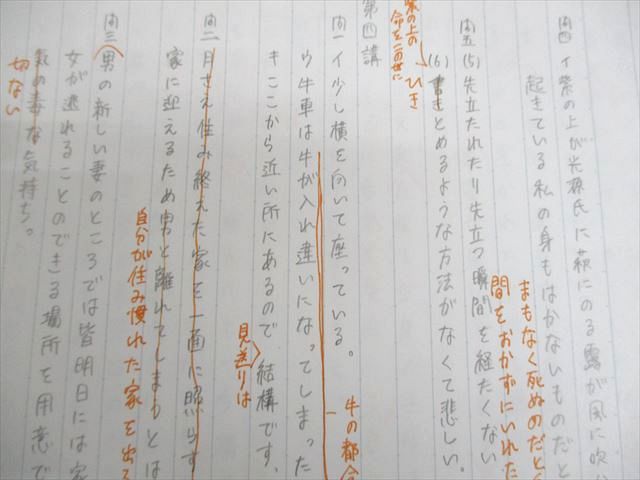 問四 イ 紫の上が光源氏に萩にのる露が風に吹か
起きている私の身もはかないものだと
まもなく死ぬのだと
問五 (5) 先立たれたり先立つ瞬間を経たくない
間をおかずにいれた
(6) 書きとめるような方法がなくて悲しい。
ひき
紫の上の
命をこの世に
第四講
問一 イ 少し横を向いて座っている。
牛の都合
ウ 牛車は牛が入れ違いになってしまった
キ ここから近い所にあるので結構です、
見送りは
問二 月さえ住み終えた家を一面に照らす
家に迎えるため男と離れてしまうとは
自分が住み慣れた家を出る
問三 男の新しい妻のところでは皆明日には家
女が逃れることのできる場所を用意で
気の毒な気持ち。
切ない